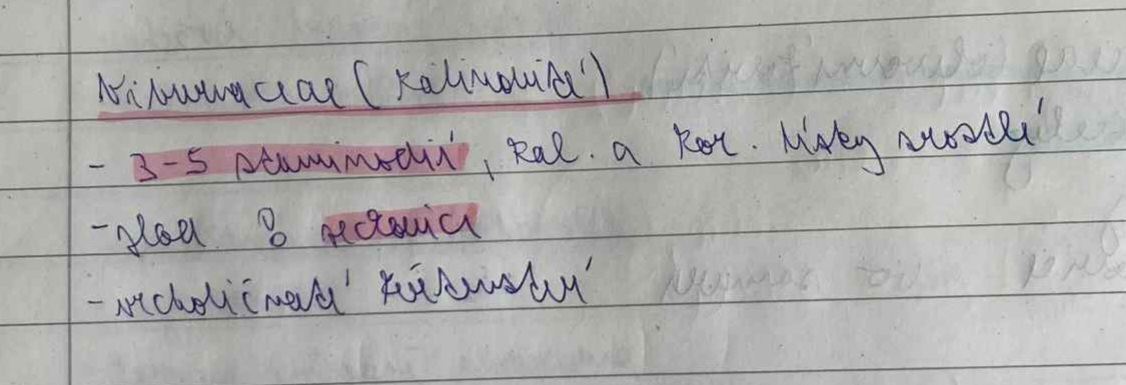 Viburnaceae (kalinovité)
- 3-5 staminodií, kal. a kor. lístky srostlé
- plod peckovice
- vrcholičnaté květenství